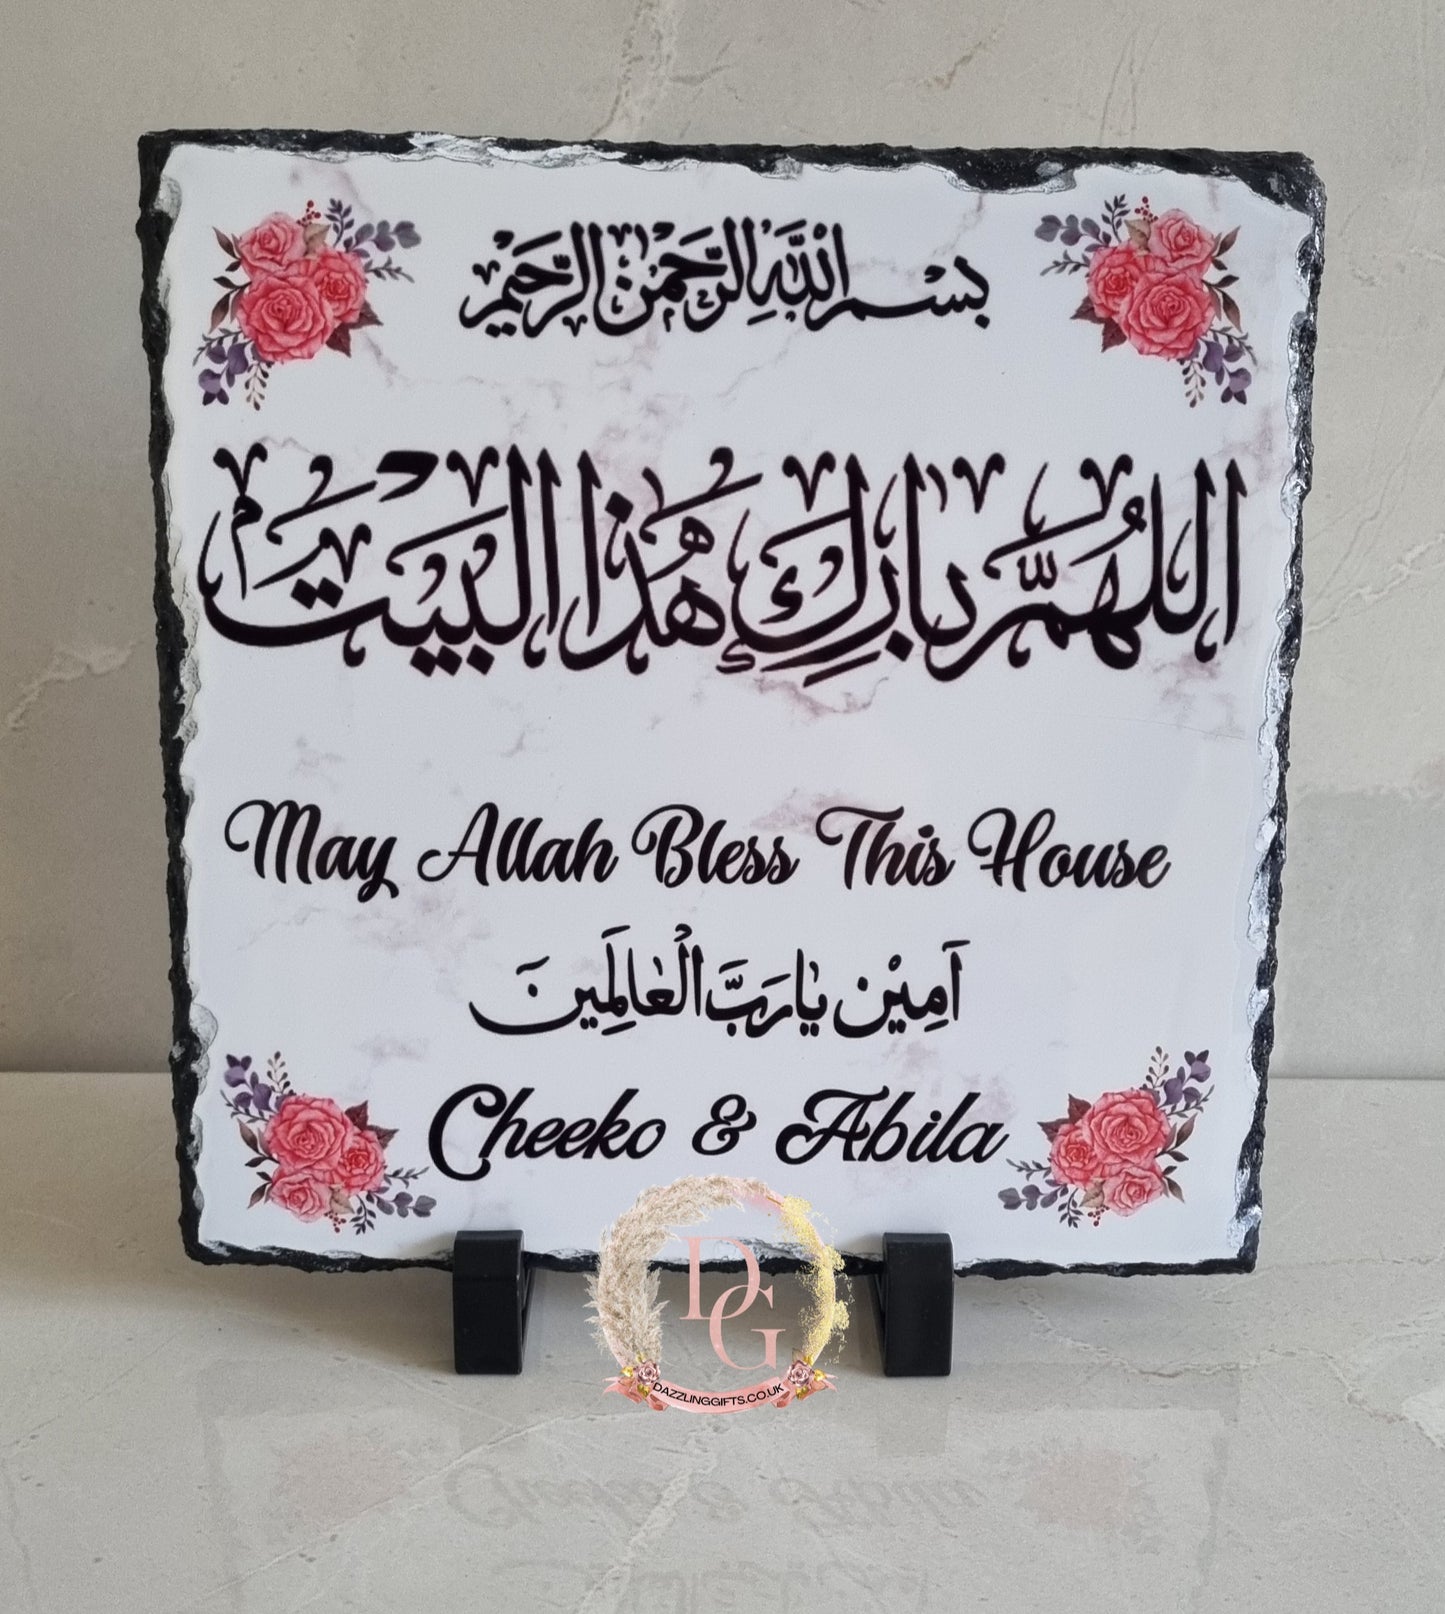 بسم الله الرحمن الرحيم
اللهم بارك هذا البيت
May Allah Bless This House
آمين يا رب العالمين
Cheeko & Abila
DG
DAZZLINGGIFTS.CO.UK